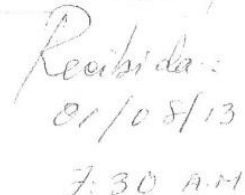 Recibida:
01/08/13
7:30 A.M